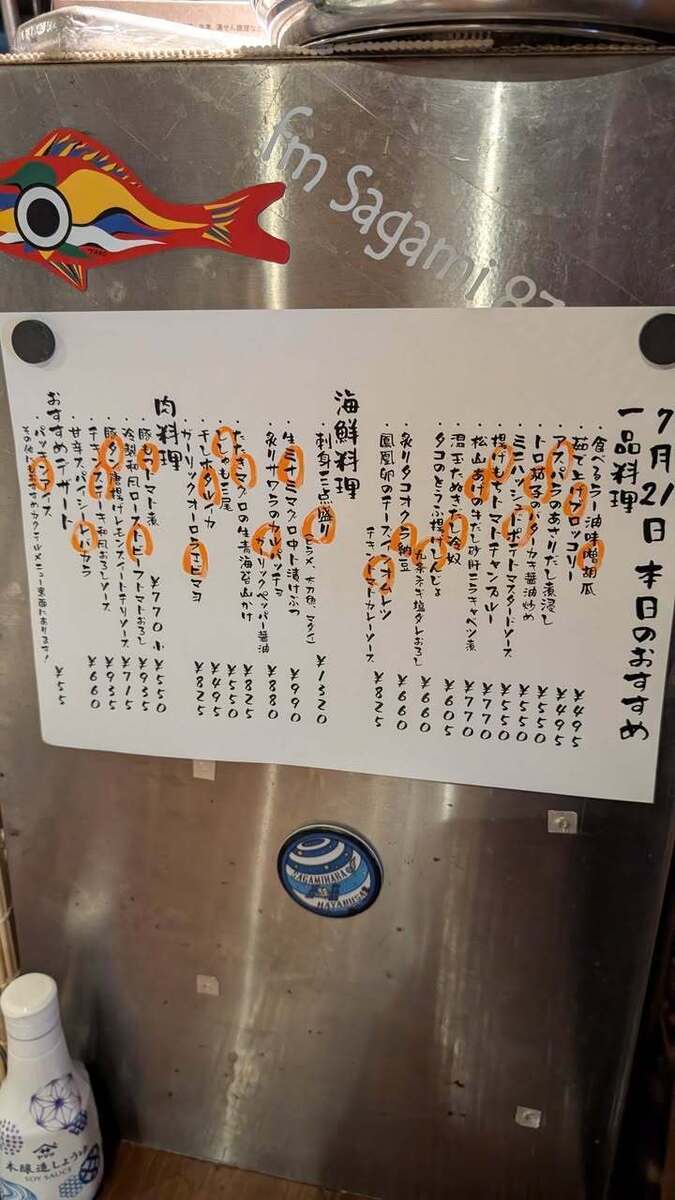 fm Sagami 83
7月21日 本日のおすすめ
一品料理
・食べるラー油味噌胡瓜 ¥495
・茹で上げブロッコリー ¥495
・アスパラのあさりだし煮浸し ¥550
・トロ茄子のバターカキ醤油炒め ¥550
・ミニハッシュドポテトマスタードソース ¥550
・揚げもちトマトチャンプルー ¥770
・松山あげ牛だし砂肝ニラキャベツ煮 ¥770
・温玉たぬきだし冷奴 ¥605
・タコのとうふ揚げ
九条ネギ塩タレおろし ¥660
・炙りタコオクラ納豆 ¥660
・鳳凰卵のチーズインオムレツ
チキントマトカレーソース ¥825
海鮮料理
・刺身三点盛り(ヒラメ、太刀魚、マダイ) ¥1320
・生ミナミマグロ中トロ漬けぶつ ¥990
・炙りサワラのカルパッチョ
ガーリックペッパー醤油 ¥880
・たたきマグロの生青海苔山かけ ¥825
・三尾 ¥550
・干しホタルイカ ¥495
・ガーリックオーロラエビマヨ ¥825
肉料理
・豚もつトマト煮 ¥770 小¥550
・冷製和風ローストビーフトマトおろし ¥935
・豚タン唐揚げレモンスイートチリソース ¥715
・チキンステーキ和風おろしソース ¥935
・甘辛スパイシー手バカラ ¥660
おすすめデザート
・パッキンアイス ¥55
その他おすすめカクテルメニュー裏面にあります!
SAGAMIHARA
HAYABUSA
ヤマサ
本醸造しょうゆ
SOY SAUCE